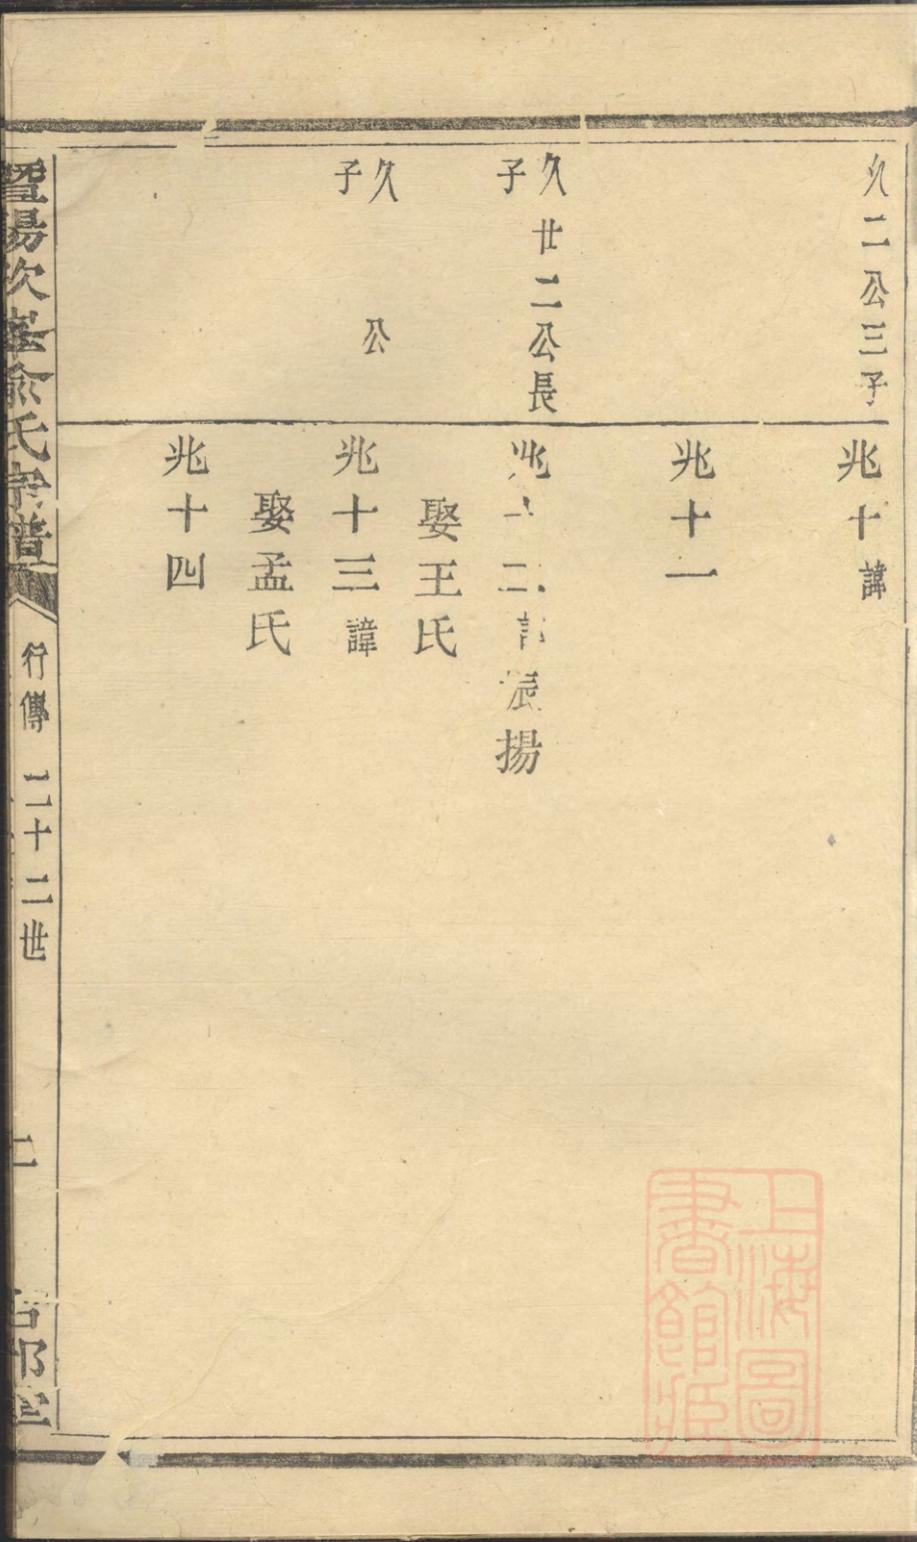 久二公三子
兆十諱
兆十一
久廿二公長
子
兆十二諱振揚
娶王氏
久　公
子
兆十三諱
娶孟氏
兆十四
暨陽次峯俞氏宗譜
行傳
二十二世
二
上海圖
書館藏